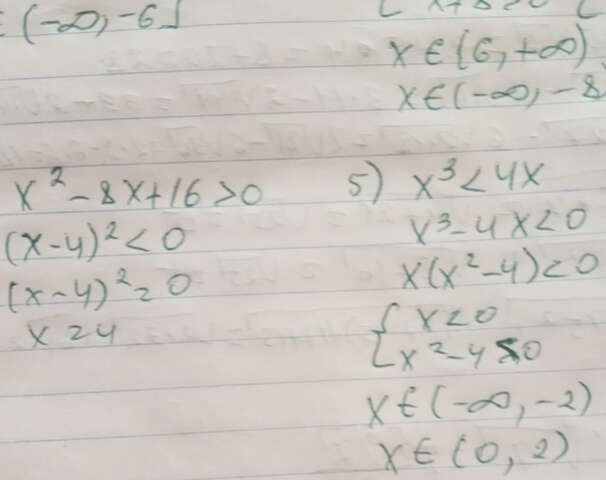 (-∞, -6]
x ∈ (6, +∞)
x ∈ (-∞, -8
x² - 8x + 16 > 0
(x-4)² < 0
(x-4)² = 0
x = 4
5) x³ < 4x
x³ - 4x < 0
x(x² - 4) < 0
{ x < 0
x² - 4 > 0
x ∈ (-∞, -2)
x ∈ (0, 2)